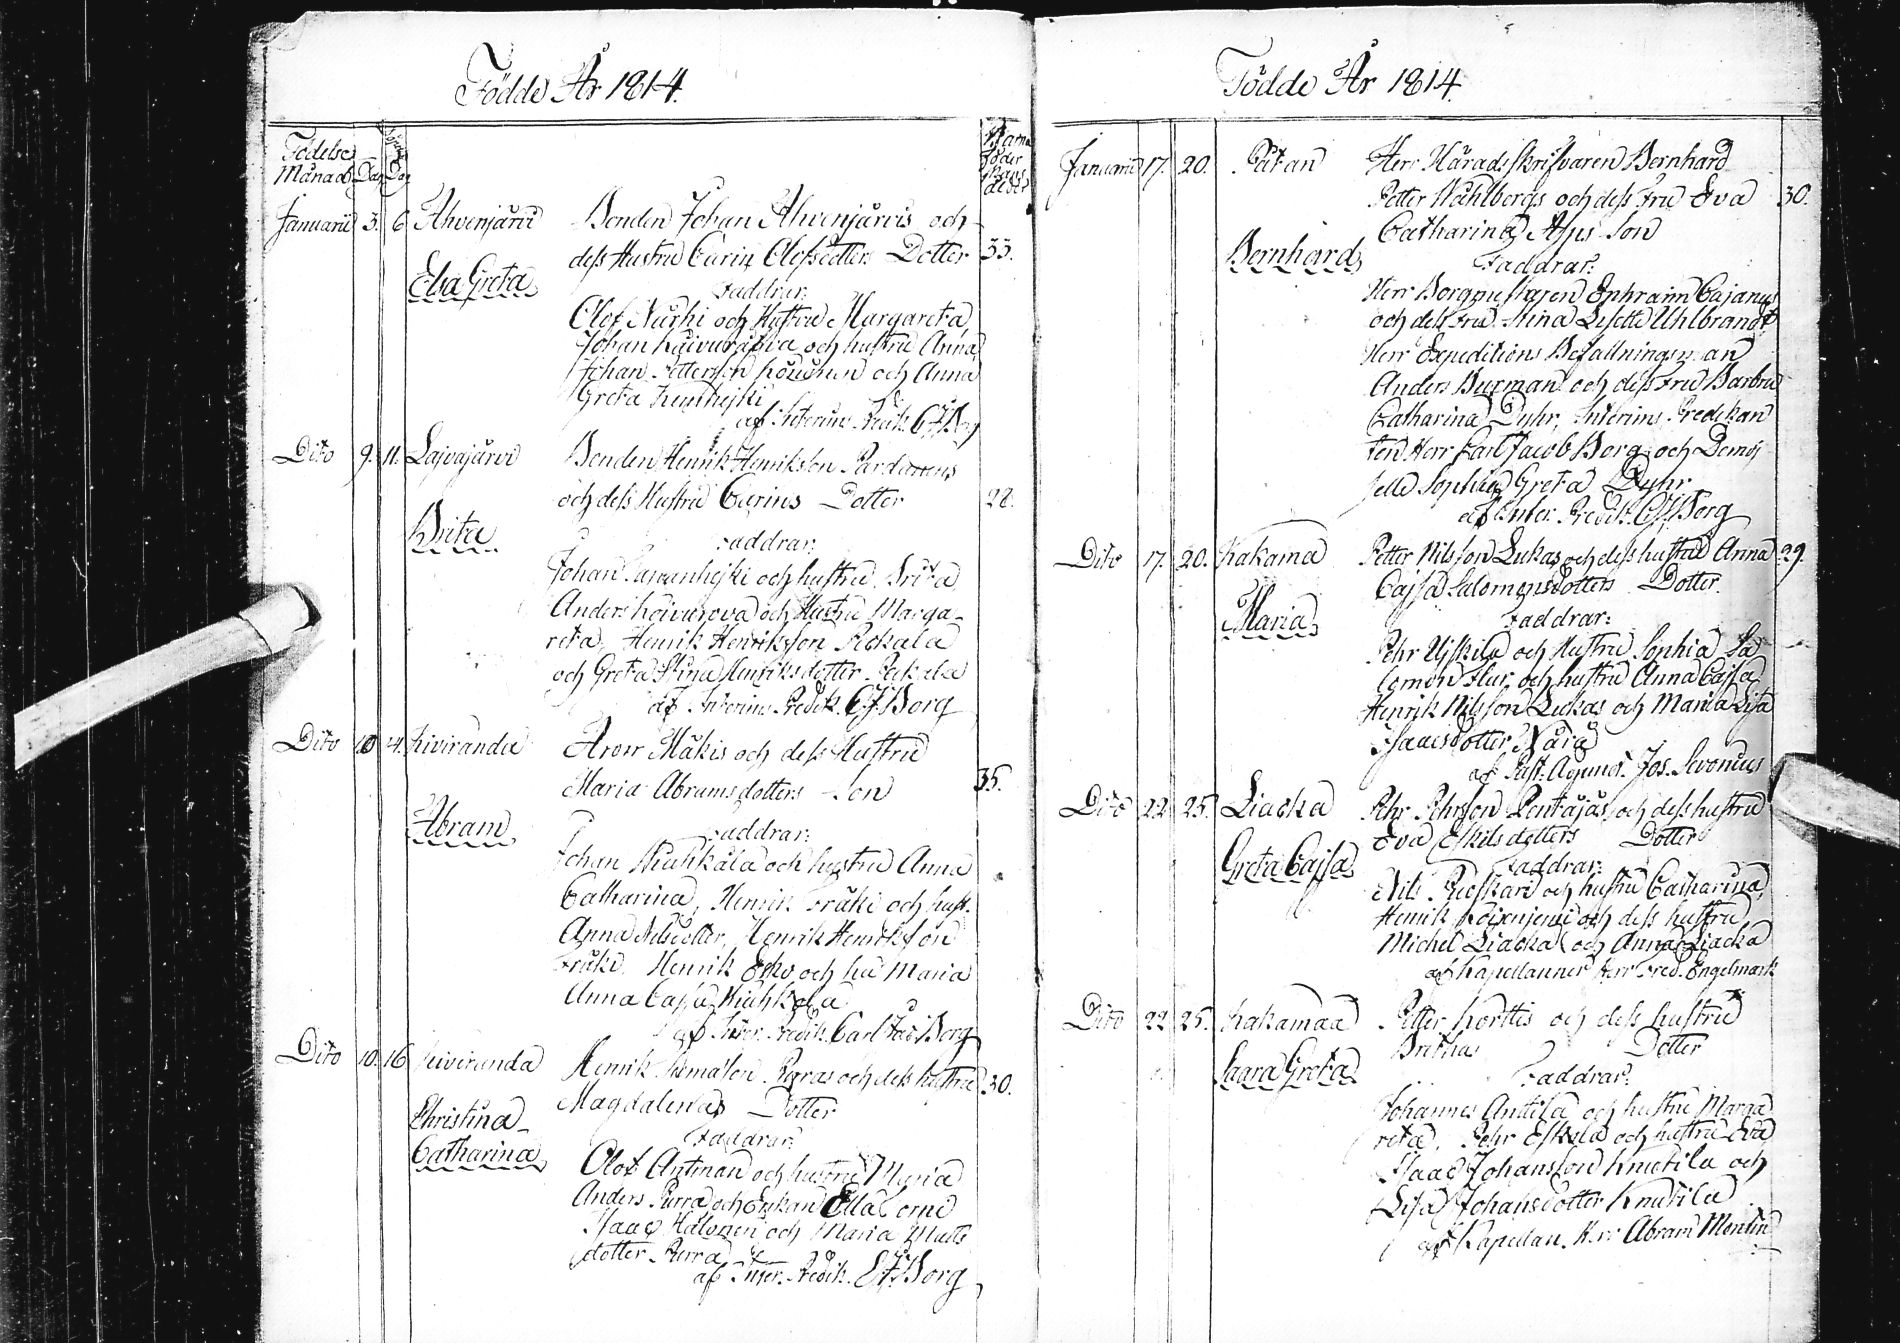 Födde År 1814.
Födelse
Månad Dag Dag
Januarii 3. 6 Ahvenjärvi Bonden Johan Ahvenjärvis och
dess Hustru Carin Olofsdotters Dotter 33.
Elsa Greta
Faddrar:
Olof Nurhi och Hustru Margareta
Johan och hustru Anna
Johan Pettersson och Anna
Greta
af Interims Predik. CJBorg
Dito 9. 11. Lajvajärvi Bonden Henrik Henriksson
och dess Hustru Carins Dotter 28.
Brita
Faddrar:
Johan och hustru Brita
Anders Koivurova och Hustru Marga-
reta, Henrik Henriksson Rekala
och Greta Stina Henriksdotter Rekala
af Interims Predik. CJBorg
Dito 10 Kiviranda Aron Mäkis och dess Hustru
Maria Abramsdotters Son 35.
Abram
Faddrar:
Johan och hustru Anna
Catharina, Henrik Fräki och hust.
Anna Nilsdotter, Henrik Henriksson
Fräki Henrik och hu Maria
Anna Cajsa
af Inter. Predik. Carl Jac Borg
Dito 10. 16 Kiviranda Henrik och dess hustru 30.
Magdalenas Dotter
Christina
Faddrar:
Catharina
Olof Antinan och hustru Maria
Anders Purra och Enkan Ella
Isaac Halonen och Maria Matts
dotter Purra
af Inter. Predik. CJBorg
Födde År 1814.
Januarii 17. 20. Pätan Herr Häradsskrifvaren Bernhard
Petter Wahlbergs och dess Fru Eva 30.
Catharina Son
Bernhard
Faddrar:
Herr Borgmestaren Ephraim Cajanus
och dess Fru Stina Lisette Uhlbrandt
Herr Expeditions Befallningsman
Anders Burman och dess Fru Barbra
Catharina Dyhr, Interims Predikan
ten Herr Carl Jacob Borg och Demoi
selle Sophia Greta Dyhr
af Inter. Predik. CJBorg
Dito 17. 20. Kakama Petter Nilsson Lukas och dess hustru Anna 29.
Cajsa Salomonsdotters Dotter.
Maria
Faddrar:
Pehr och Hustru Sophia Sa-
lomon och hustru Anna Cajsa
Henrik Nilsson Lukas och Maria Lisa
Isaacsdotter Nara
af Past. Adjunct. Jos.
Dito 22 25. Liacka Pehr Pehrsson och dess hustru
Eva Eskilsdotters Dotter
Greta Cajsa
Faddrar:
Nils Ruskari och hustru Catharina,
Henrik och dess hustru
Michel Liacka och Anna Liacka
af Kapellanner Herr Fred. Engelmark
Dito 22 25. Kakamaa Petter Korttis och dess hustru
Britas Dotter
Saara Greta
Faddrar:
Johannes Antila och hustru Marga
reta, Pehr Eskola och hustru Eva
Isaac Johansson Knutila och
Lisa Johansdotter Knutila
af Kapellan. Herr Abram Montin